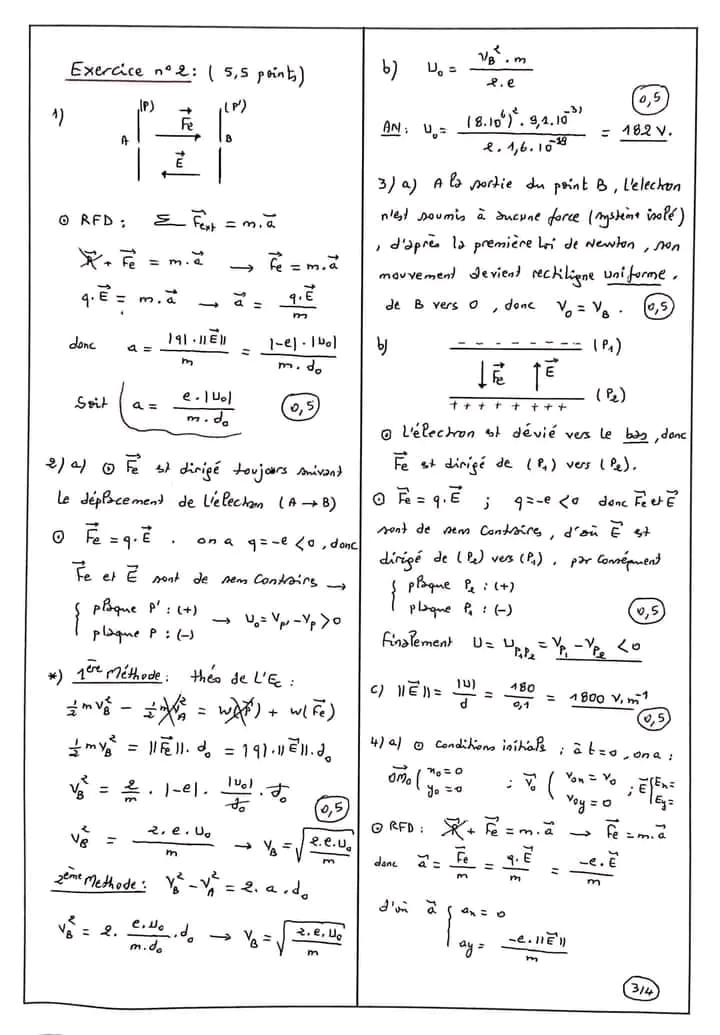 Exercice n°2: (5,5 points)
1)
(P) (P')
Fe
A B
E
⊙ RFD: Σ Fext = m.a
P + Fe = m.a → Fe = m.a
q.E = m.a → a = q.E / m
donc a = |q|.||E|| / m = |-e|.|U0| / m.d0
Soit a = e.|U0| / m.d0 (0,5)
2) a) ⊙ Fe est dirigé toujours suivant
le déplacement de l'électron (A → B)
⊙ Fe = q.E . on a q=-e <0, donc
Fe et E sont de sens contrairs →
{ plaque P' : (+)
plaque P : (-) → U0 = VP' - VP >0
*) 1ère Méthode: théo de L'Ec :
½ m VB² - ½ m VA² = W(P) + W(Fe)
½ m VB² = ||Fe||. d0 = |q|.||E||.d0
VB² = 2/m . |-e|. |U0|/d0 . d0
(0,5)
VB² = 2.e.U0 / m → VB = √(2.e.U0 / m)
2ème Méthode: VB² - VA² = 2.a.d0
VB² = 2. e.U0 / m.d0 .d0 → VB = √(2.e.U0 / m)
b) U0 = VB².m / 2.e
(0,5)
AN: U0 = (8.10⁶)². 9,1.10⁻³¹ / 2. 1,6.10⁻¹⁹ = 182 V.
3) a) A la sortie du point B, L'électron
n'est soumis à aucune force (système isolé)
, d'après la première loi de Newton, son
mouvement devient rectiligne uniforme.
de B vers O , donc V0 = VB . (0,5)
b)
- - - - - - - - (P1)
Fe E
(P2)
+ + + + + + + +
⊙ L'électron est dévié vers le bas, donc
Fe est dirigé de (P1) vers (P2).
⊙ Fe = q.E ; q=-e <0 donc Fe et E
sont de sens contraires, d'où E est
dirigé de (P2) vers (P1), par conséquent
{ plaque P2 : (+)
plaque P1 : (-) (0,5)
Finalement U = UP1P2 = VP1 - VP2 <0
c) ||E|| = |U| / d = 180 / 0,1 = 1800 V.m⁻¹
(0,5)
4) a) ⊙ conditions initials ; à t=0, on a :
OM0 ( x0 = 0 ; V0 ( V0x = V0 ; E ( Ex=
y0 = 0 V0y = 0 Ey=
⊙ RFD: P + Fe = m.a → Fe = m.a
donc a = Fe / m = q.E / m = -e.E / m
d'où a { ax = 0
ay = -e.||E|| / m
3/4